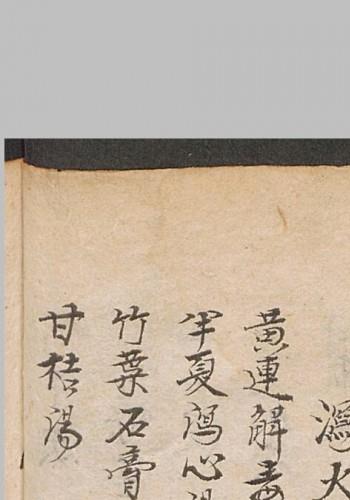 大
黄連解毒
半夏瀉心湯
竹葉石膏
甘桔湯